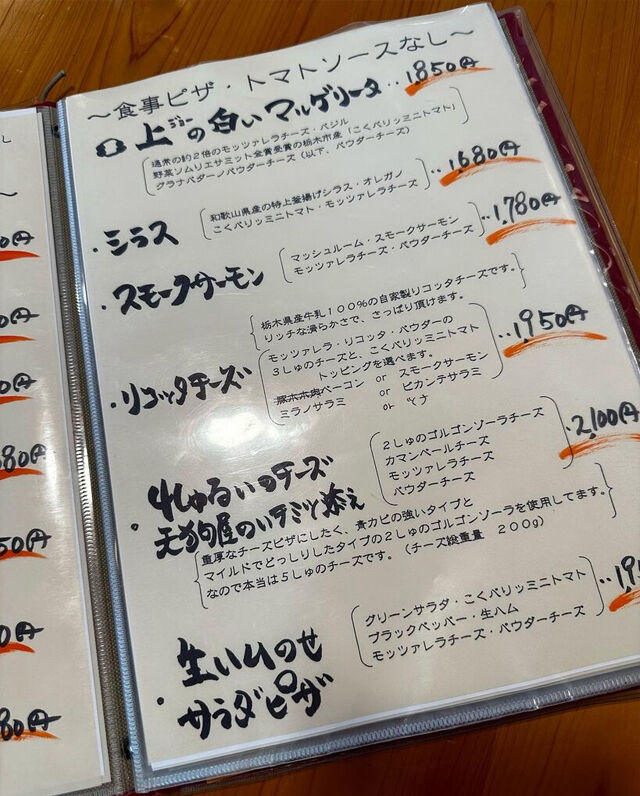 ～食事ピザ・トマトソースなし～
上ジョーの白いマルゲリータ‥1,850円
通常の約2倍のモッツァレラチーズ・バジル
野菜ソムリエサミット金賞受賞の栃木市産「こくパリッミニトマト」
グラナパダーノパウダーチーズ（以下、パウダーチーズ）
・シラス
和歌山県産の特上釜揚げシラス・オレガノ
こくパリッミニトマト・モッツァレラチーズ
‥1,680円
・スモークサーモン
マッシュルーム・スモークサーモン
モッツァレラチーズ・パウダーチーズ
‥1,780円
・リコッタチーズ
栃木県産牛乳１００％の自家製リコッタチーズです。
リッチな滑らかさで、さっぱり頂けます。
モッツァレラ・リコッタ・パウダーの
３しゅのチーズと、こくパリッミニトマト
トッピングを選べます。
ベーコン or スモークサーモン
ミラノサラミ or ピカンテサラミ
or ツナ
‥1,950円
・4しゅるいのチーズ
天狗屋のハチミツ添え
２しゅのゴルゴンゾーラチーズ
カマンベールチーズ
モッツァレラチーズ
パウダーチーズ
‥2,100円
重厚なチーズピザにしたく、青カビの強いタイプと
マイルドでどっしりしたタイプの２しゅのゴルゴンゾーラを使用してます。
なので本当は５しゅのチーズです。（チーズ総重量 ２００ｇ）
・生ハムのせ
サラダピザ
グリーンサラダ・こくパリッミニトマト
ブラックペッパー・生ハム
モッツァレラチーズ・パウダーチーズ